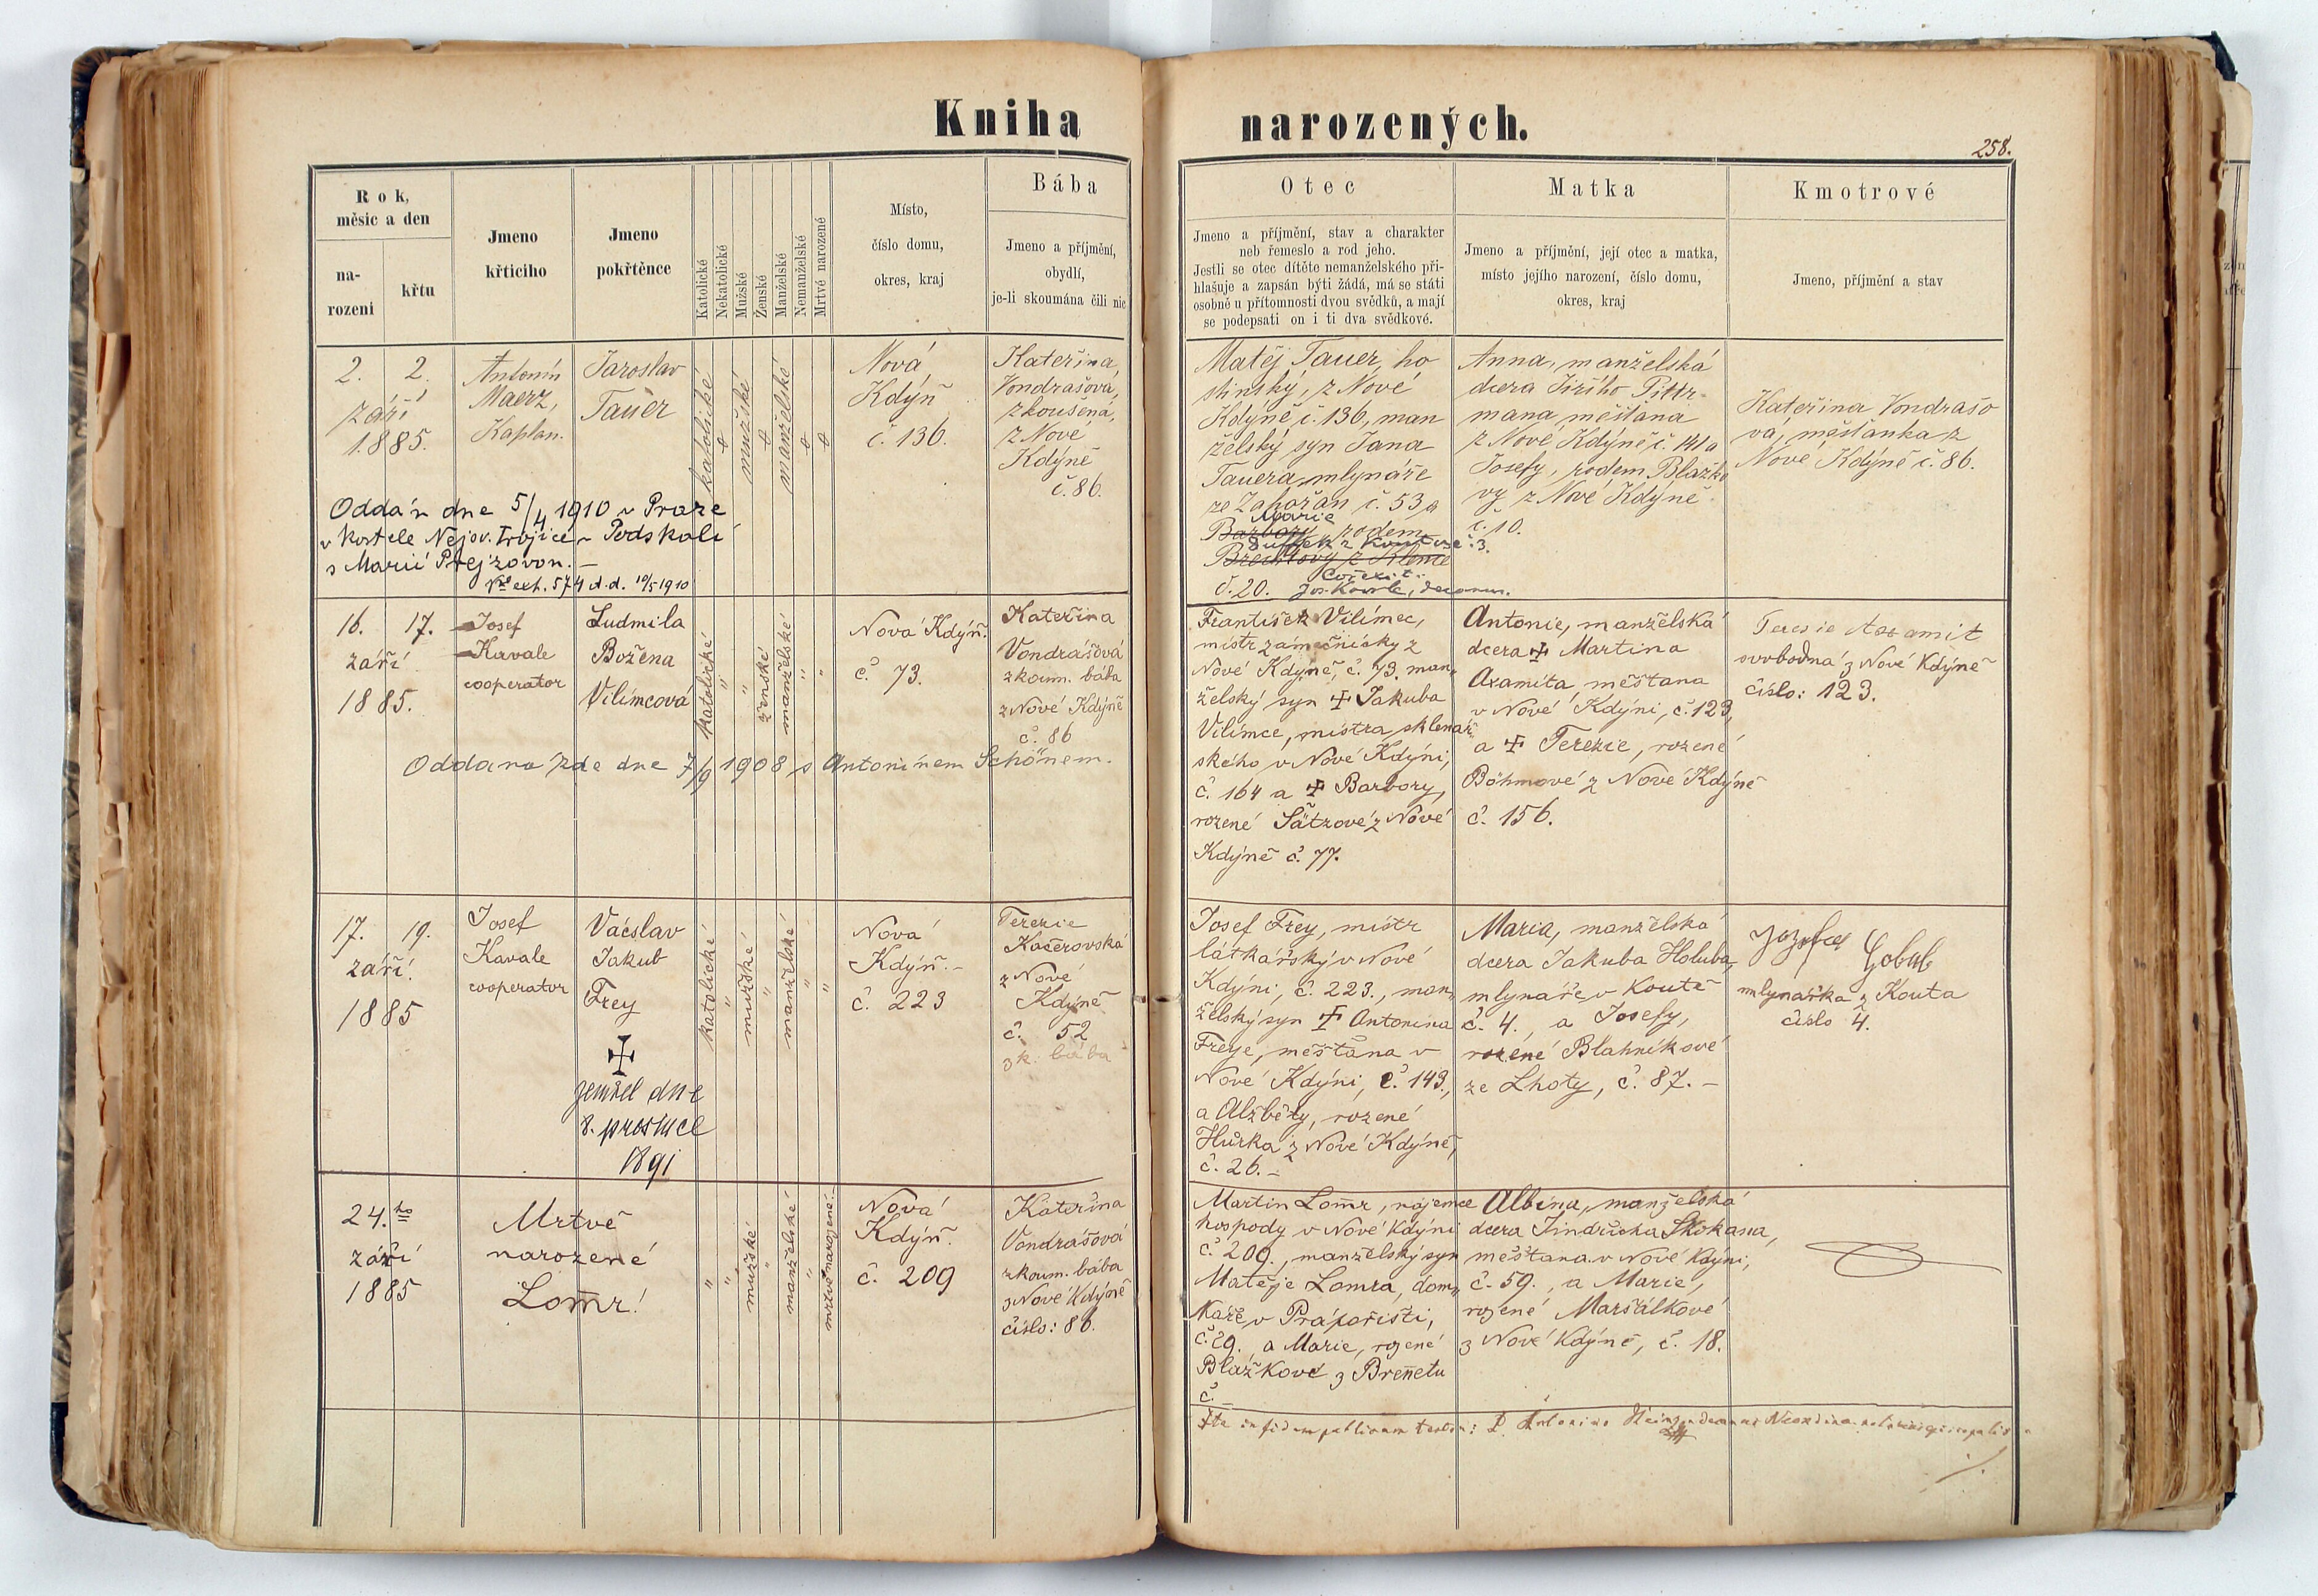 Kniha narozených.
258.
Rok,
měsíc a den
na-
rozeni
křtu
Jmeno
křticího
Jmeno
pokřtěnce
Katolické
Nekatolické
Mužské
Ženské
Manželské
Nemanželské
Mrtvé narozené
Místo,
číslo domu,
okres, kraj
Bába
Jmeno a příjmění,
obydlí,
je-li skoumána čili nic
Otec
Jmeno a příjmění, stav a charakter
neb řemeslo a rod jeho.
Jestli se otec dítěte nemanželského při-
hlašuje a zapsán býti žádá, má se státi
osobně u přítomnosti dvou svědků, a mají
se podepsati on i ti dva svědkové.
Matka
Jmeno a příjmění, její otec a matka,
místo jejího narození, číslo domu,
okres, kraj
Kmotrové
Jmeno, příjmění a stav
2. 2.
září
1885.
Antonín
Maerz,
Kaplan.
Jaroslav
Tauer
katolické
mužské
manželské
Nová
Kdýň
č. 136.
Kateřina
Vondrašová,
zkoušena,
z Nové
Kdýně
č. 86.
Matěj Tauer, ho
stinský, z Nové
Kdýně č. 136, man
želský syn Jana
Tauera, mlynáře
ze Zahořan č. 53, a
Marie
Barbory, rodem
z Kout č. 3.
č. 20.
Anna, manželská
dcera Jiřího Pittr-
mana, měšťana
z Nové Kdýně č. 141 a
Josefy, rodem Blažko
vy z Nové Kdýně
č. 10.
Kateřina Vondrašo
vá, měšťanka z
Nové Kdýně č. 86.
Oddán dne 5/4 1910 v Praze
v kostele Nejsv. Trojice v Podskalí
s Marií Prejzovou. –
No exh. 574 d. d. 10/5 1910
16. 17.
září
1885.
Josef
Kavale
cooperator
Ludmila
Božena
Vilímcová
katolické
"
"
ženské
manželské
"
"
Nová Kdýň.
č. 73.
Kateřina
Vondrášová
zkoum. bába
z Nové Kdýně
č. 86
František Vilímec,
mistr zámečnický z
Nové Kdýně, č. 73. man-
želský syn ✝ Jakuba
Vilímce, mistra sklenář
ského v Nové Kdýni,
č. 164 a ✝ Barbory,
rozené Šátzové z Nové
Kdýně č. 77.
Antonie, manželská
dcera ✝ Martina
Axamita, měštana
v Nové Kdýni, č. 123,
a ✝ Terezie, rozené
Böhmové z Nové Kdýně
č. 156.
Teresie Axamit
svobodná z Nové Kdýně
číslo: 123.
Oddána zde dne 7/9 1908 s Antonínem Schönem.
17. 19.
září.
1885
Josef
Kavale
cooperator
Václav
Jakub
Frey
✝
zemřel dne
8. prosince
1891
katolické
"
mužské
"
manželské
"
"
Nová
Kdýň. –
č. 223
Terezie
Kačerovská
z Nové
Kdýně
č. 52
zk. bába
Josef Frey, mistr
látkářský v Nové
Kdýni, č. 223., man-
želský syn ✝ Antonína
Freye, měštana v
Nové Kdýni, č. 143.,
a Alžběty, rozené
Hůrka z Nové Kdýně,
č. 26. –
Maria, manželská
dcera Jakuba Holuba,
mlynáře v Koutě
č. 4., a Josefy,
rozené Blahníkové
ze Lhoty, č. 87. –
Jozefa Golub
mlynářka z Kouta
číslo 4.
24.ho
září
1885
Mrtvě
narozené
Lomr!
"
"
mužské
"
manželské
"
mrtvě narozené.
Nová
Kdýň.
č. 209
Kateřina
Vondrášová
zkoum. bába
z Nové Kdýně
číslo: 86.
Martin Lomr, nájemce
hospody v Nové Kdýni
č. 209., manželský syn
Matěje Lomra, dom-
káře v Prápořišti,
č. 29., a Marie, rozené
Blažkové z Brennetu
č. –
Albína, manželská
dcera Jindřicha Skokana,
měštana v Nové Kdýni,
č. 59., a Marie,
rozené Maršálkové
z Nové Kdýně, č. 18.
Ita in fidem publicam testor: P. Antonius